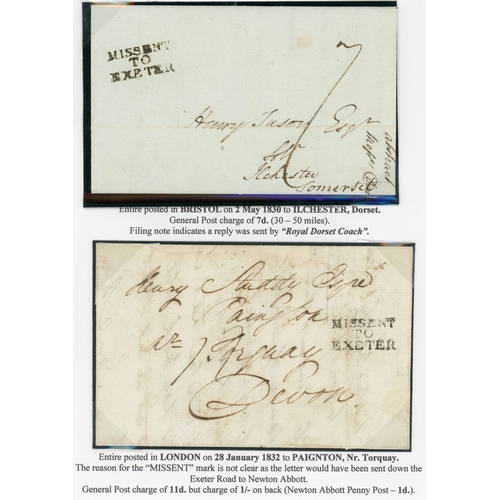 MISSENT
TO
EXETER
7
Henry Tuson Esqr
Ilchester
Somerset
Entire posted in BRISTOL on 2 May 1830 to ILCHESTER, Dorset.
General Post charge of 7d. (30 – 50 miles).
Filing note indicates a reply was sent by "Royal Dorset Coach".
Henry Studdy Esqre
Paington
Nr Torquay
Devon
MISSENT
TO
EXETER
Entire posted in LONDON on 28 January 1832 to PAIGNTON, Nr. Torquay.
The reason for the "MISSENT" mark is not clear as the letter would have been sent down the
Exeter Road to Newton Abbott.
General Post charge of 11d. but charge of 1/- on back (Newton Abbott Penny Post – 1d.).